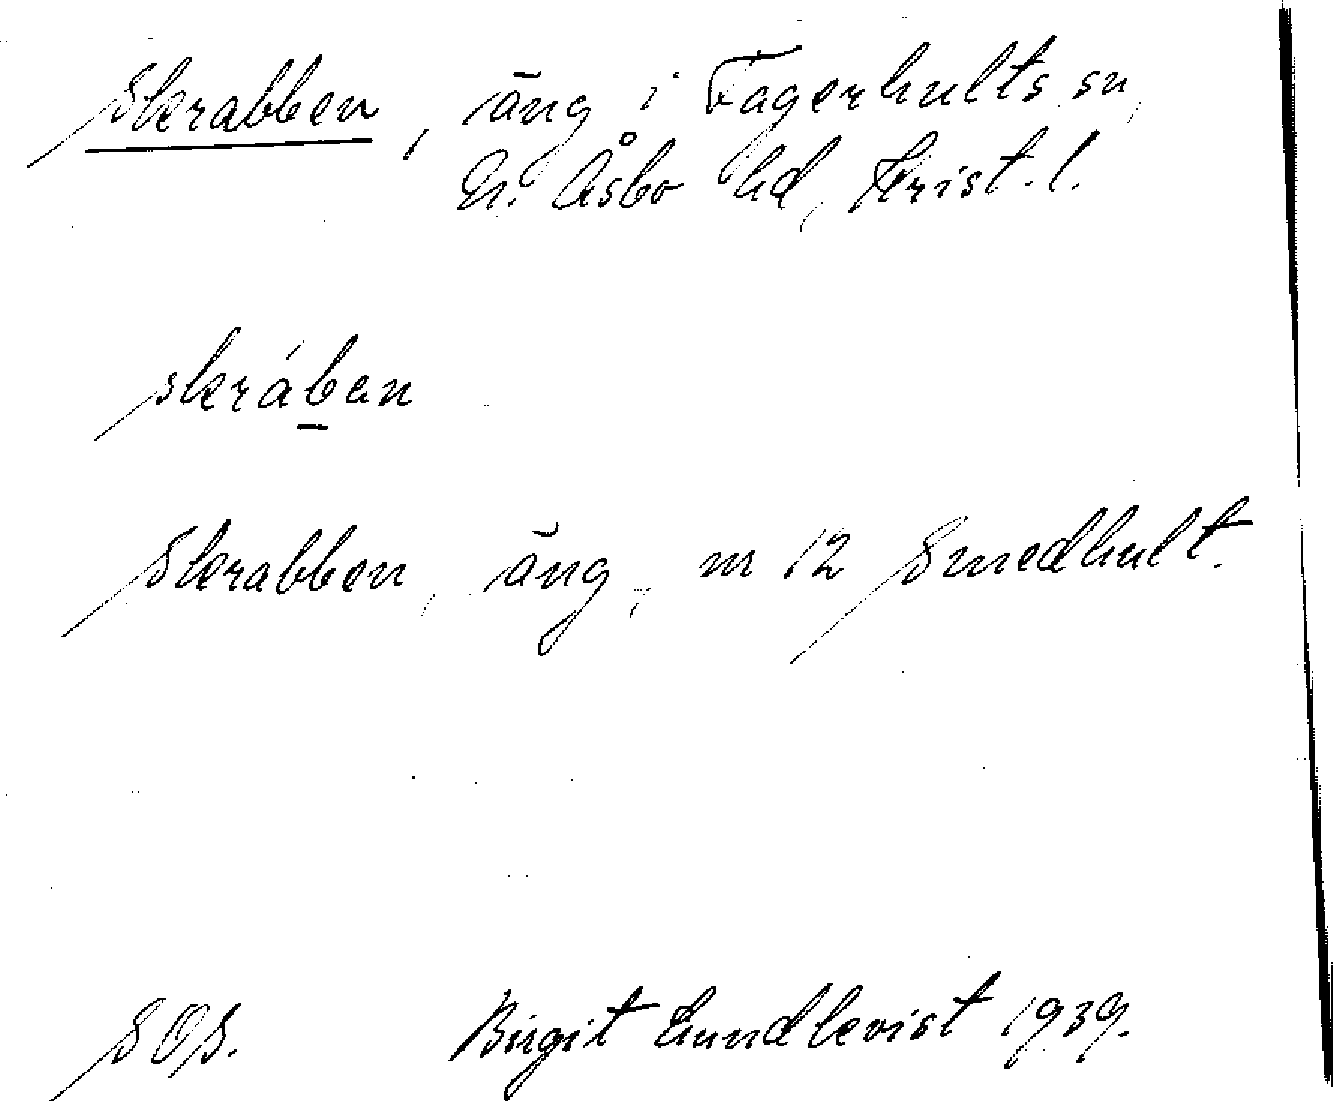 Skrabben, äng i Fagerhults sn,
N. Åsbo hd, Krist. l.
skráb̲an
Skrabben, äng, nr 12 Smedhult.
SOS. Birgit Lundkvist 1939.